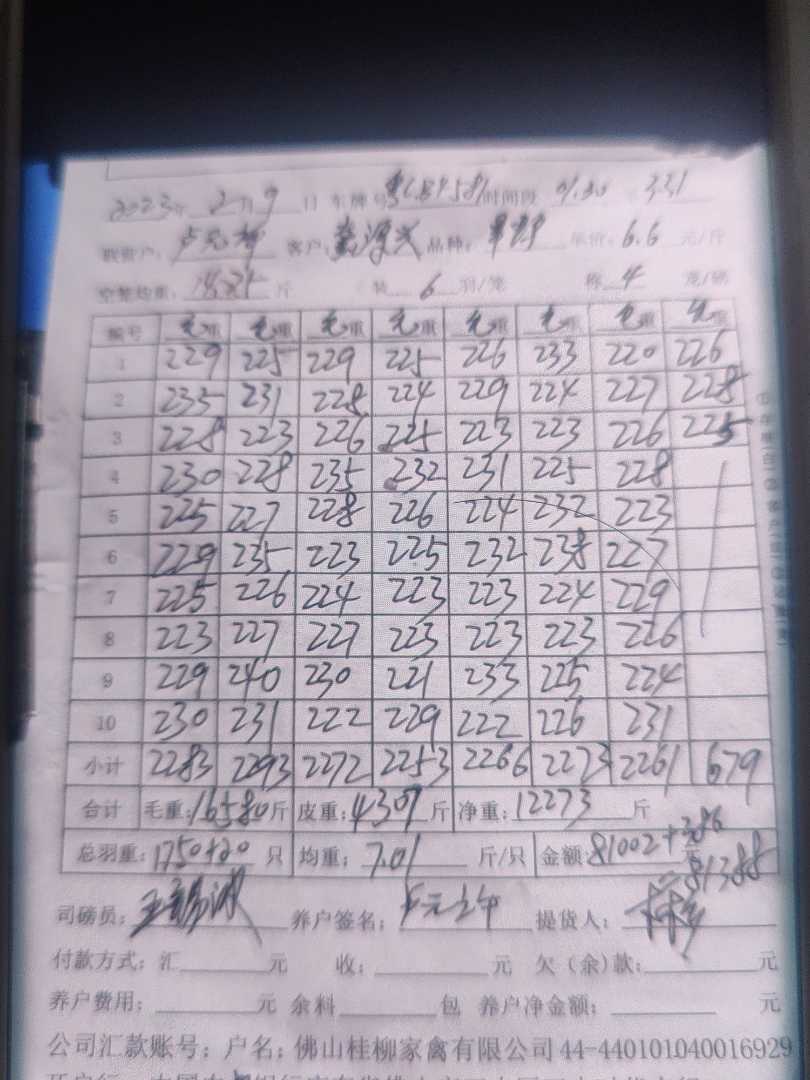 2023年 2月9日 车牌号 时间段 01:30 331
客户: 品种: 单价: 6.6 元/斤
空笼均重: 斤 装 6 羽/笼 称 4 笼/磅
编号 毛重 毛重 毛重 毛重 毛重 毛重 毛重 毛重
1 229 225 229 225 226 233 220 226
2 235 231 228 224 229 224 227 228
3 228 223 226 225 223 223 226 225
4 230 228 235 232 231 225 228
5 225 227 228 226 224 232 223
6 229 235 223 225 232 238 227
7 225 226 224 223 223 224 229
8 223 227 227 223 223 223 226
9 229 240 230 221 233 225 224
10 230 231 222 229 222 226 231
小计 2283 2293 2272 2253 2266 2273 2261 679
合计 毛重: 16580 斤 皮重: 4307 斤 净重: 12273 斤
总羽重: 1750+20 只 均重: 7.01 斤/只 金额: 81002+386 元
=81388
司磅员: 养户签名: 提货人:
付款方式: 汇 元 收: 元 欠(余)款: 元
养户费用: 元 余料 包 养户净金额: 元
公司汇款账号: 户名: 佛山桂柳家禽有限公司 44-440101040016929